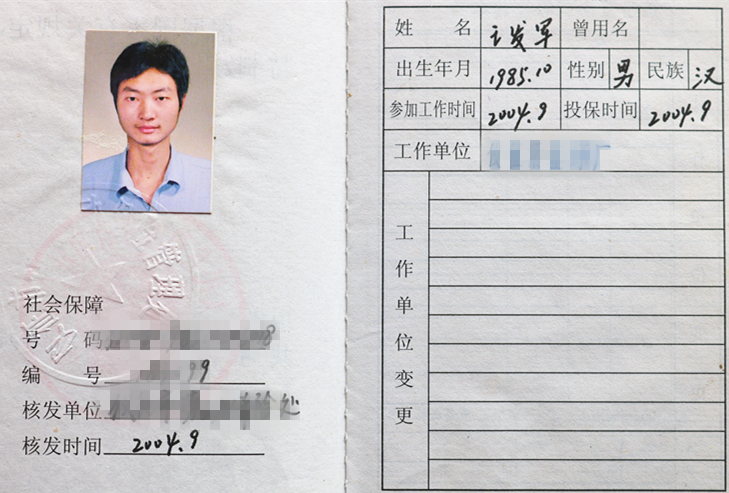 社会保障
号 码 8
编 号 99
核发单位 处
核发时间 2004.9
姓 名 主发军 曾用名
出生年月 1985.10 性别 男 民族 汉
参加工作时间 2004.9 投保时间 2004.9
工作单位
工作单位变更